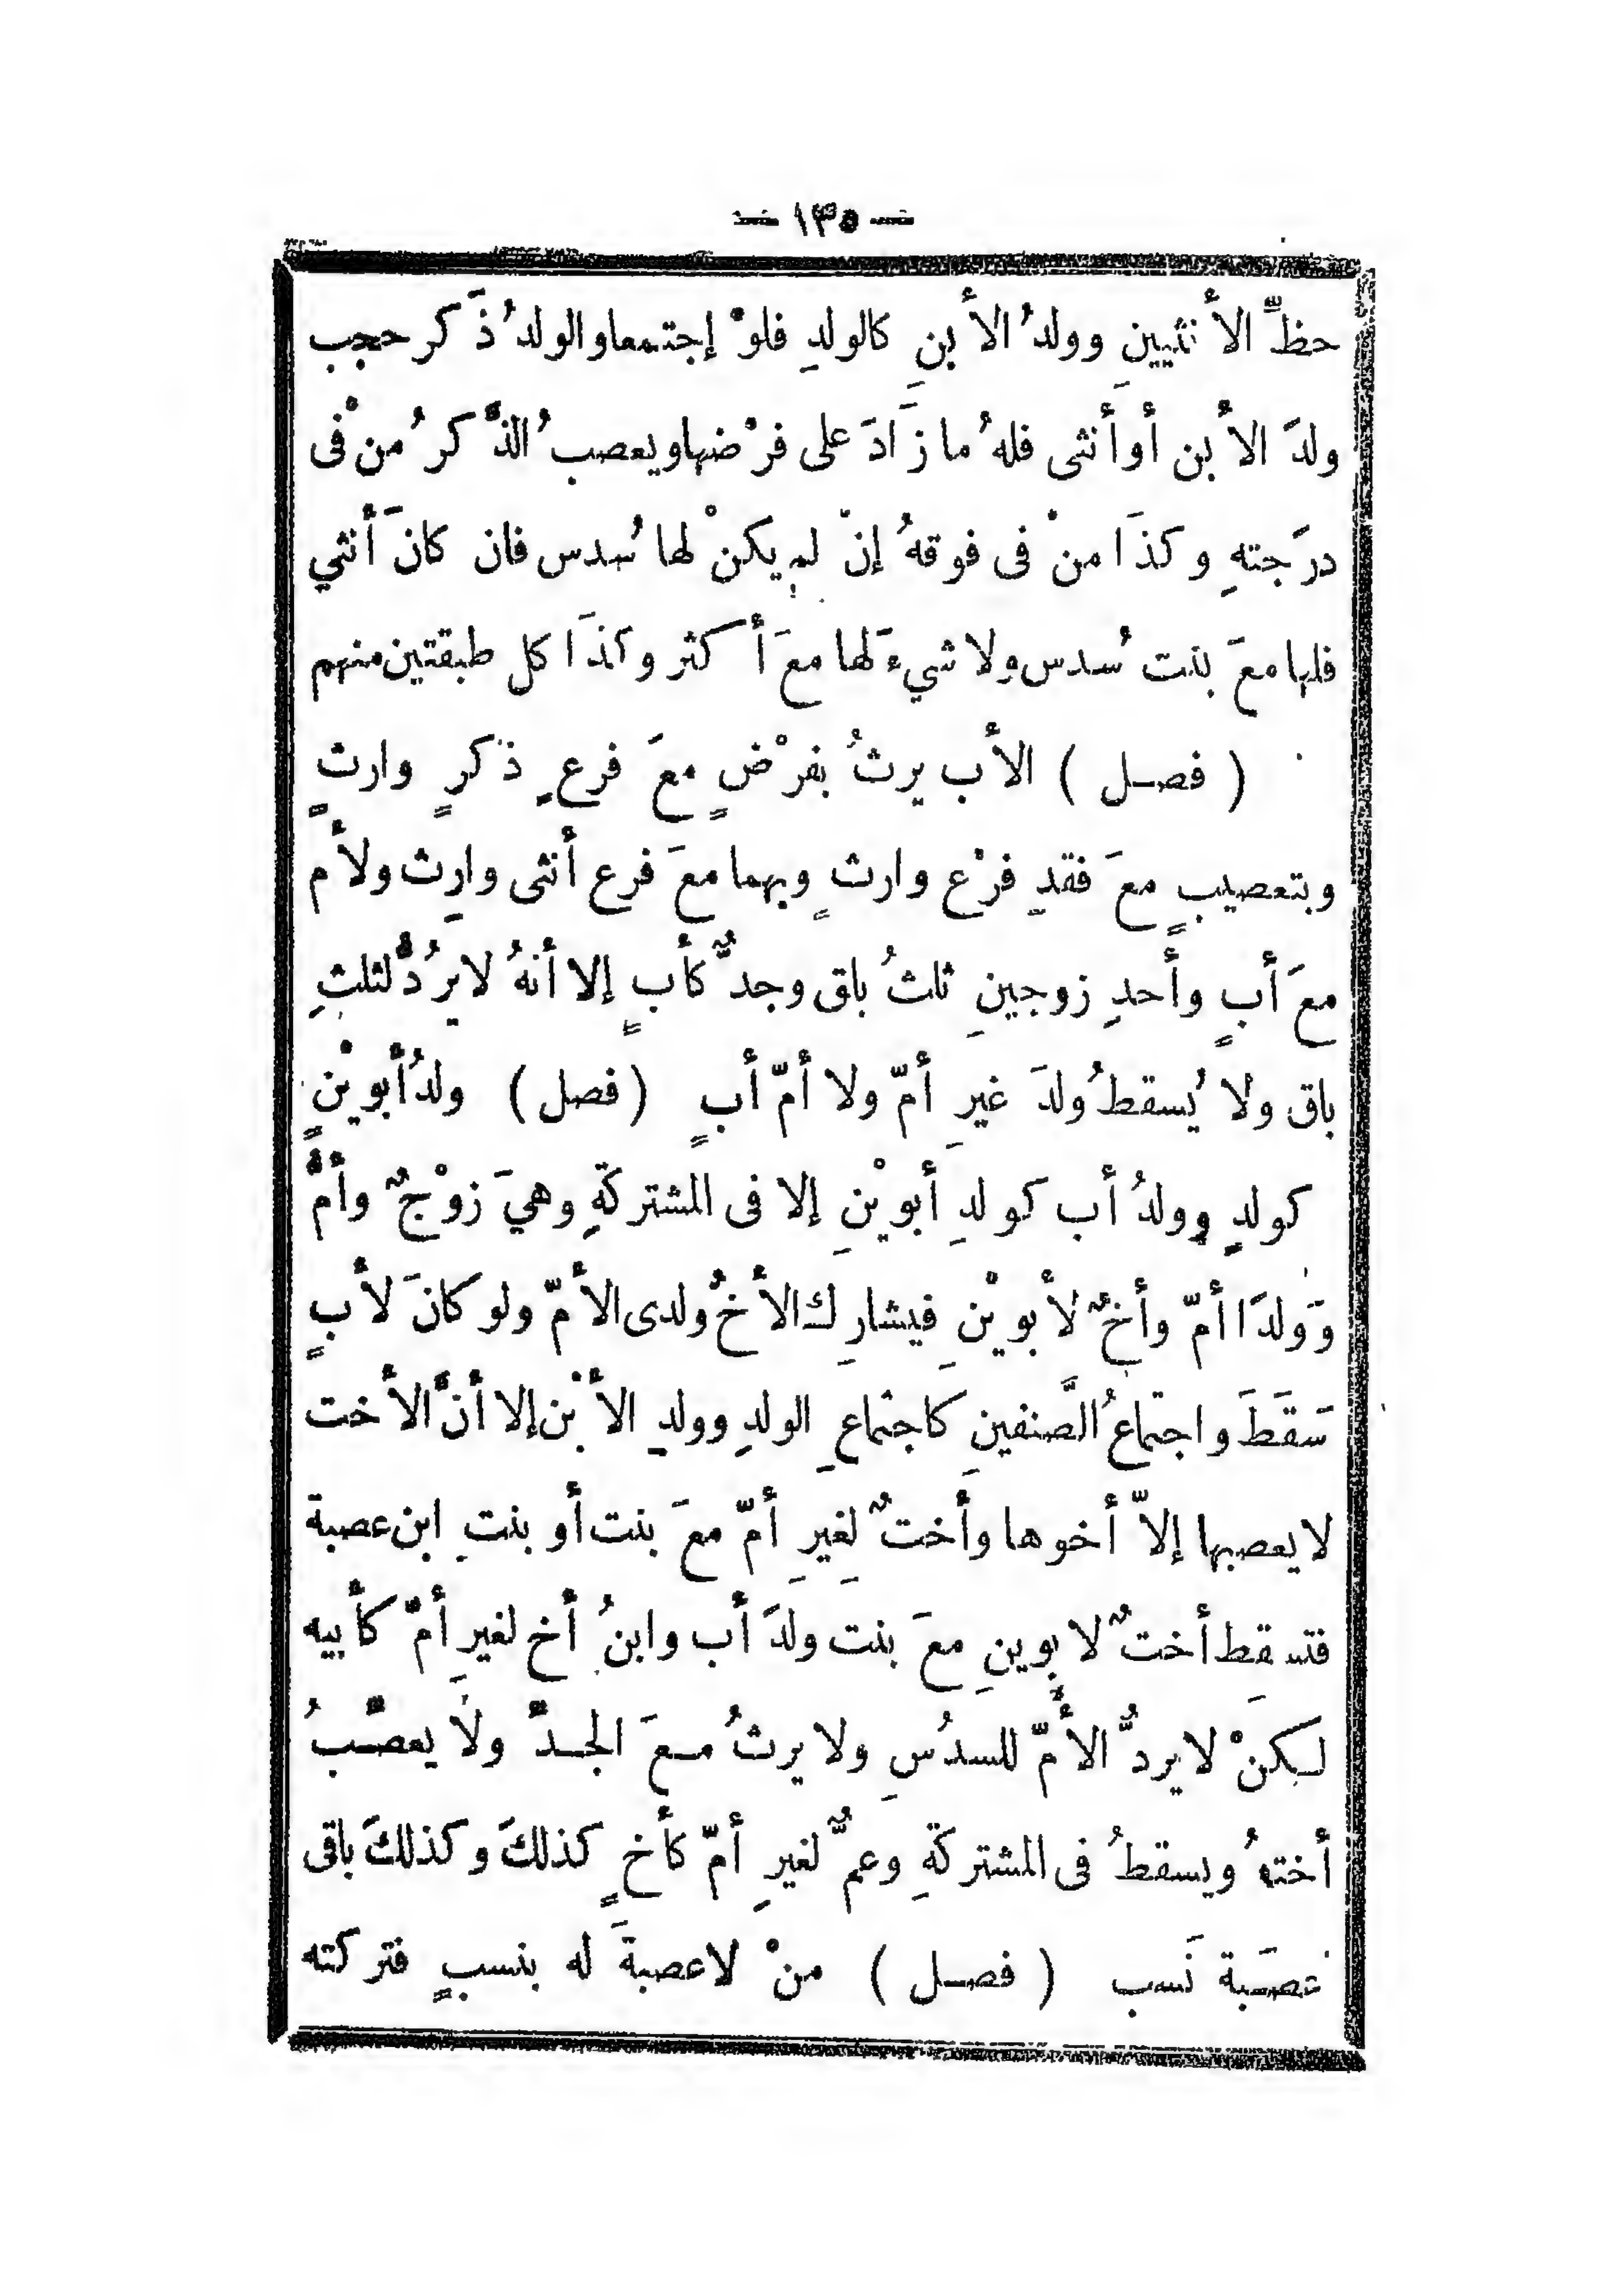 — ١٣٥ —
حظِّ الأنثيين وولدُ الأبنِ كالولدِ فلوْ إجتمعا والولدُ ذَكر حجب
ولدَ الأبن أو أنثى فلهُ ما زَادَ على فرْضها ويعصبُ الذَّكرُ منْ فى
درَجتهِ وكذَا منْ فى فوقهُ إنْ لم يكنْ لها سُدس فان كانَ أنثي
فلها معَ بنت سُدس ولا شيءَ لها معَ أكثر وكذَا كل طبقتين منهم
( فصل ) الأب يرثُ بفرْضٍ معَ فرعٍ ذكرٍ وارثٍ
وبتعصيبٍ معَ فقدِ فرْع وارثٍ وبهما معَ فرع أنثى وارِث ولأم
معَ أبٍ وأحدِ زوجينِ ثلثُ باق وجدٌّ كأبٍ إلا أنهُ لا يرُدُّ لثلثِ
باق ولا يُسقطُ ولدَ غيرِ أمّ ولا أمّ أبٍ ( فصل ) ولدُ أبويْنٍ
كولدٍ وولدُ أب كولدِ أبويْنِ إلا فى المشتركةِ وهيَ زوْجٌ وأمٌّ
وَولدَا أمّ وأخٌ لأبويْنِ فيشارِك الأخُ ولدى الأمّ ولو كانَ لأبٍ
سَقَطَ واجتماعُ الصَّنفينِ كاجتماعِ الولدِ وولدِ الأبْن إلا أنَّ الأخت
لا يعصبها إلاّ أخوها وأختٌ لِغيرِ أمّ معَ بنت أو بنتِ ابن عصبة
فتسقِط أختٌ لابوينِ معَ بنت ولدَ أب وابنُ أخ لغيرِ أمّ كأبيه
لكنْ لا يردُّ الأمّ للسدُسِ ولا يرثُ معَ الجدِّ ولا يعصِّبُ
أختهُ ويسقطُ فى المشتركةِ وعمٌّ لغيرِ أمّ كأخٍ كذلكَ وكذلكَ باقى
عصَبة نَسب ( فصل ) منْ لا عصبةَ له بنسبٍ فتركته